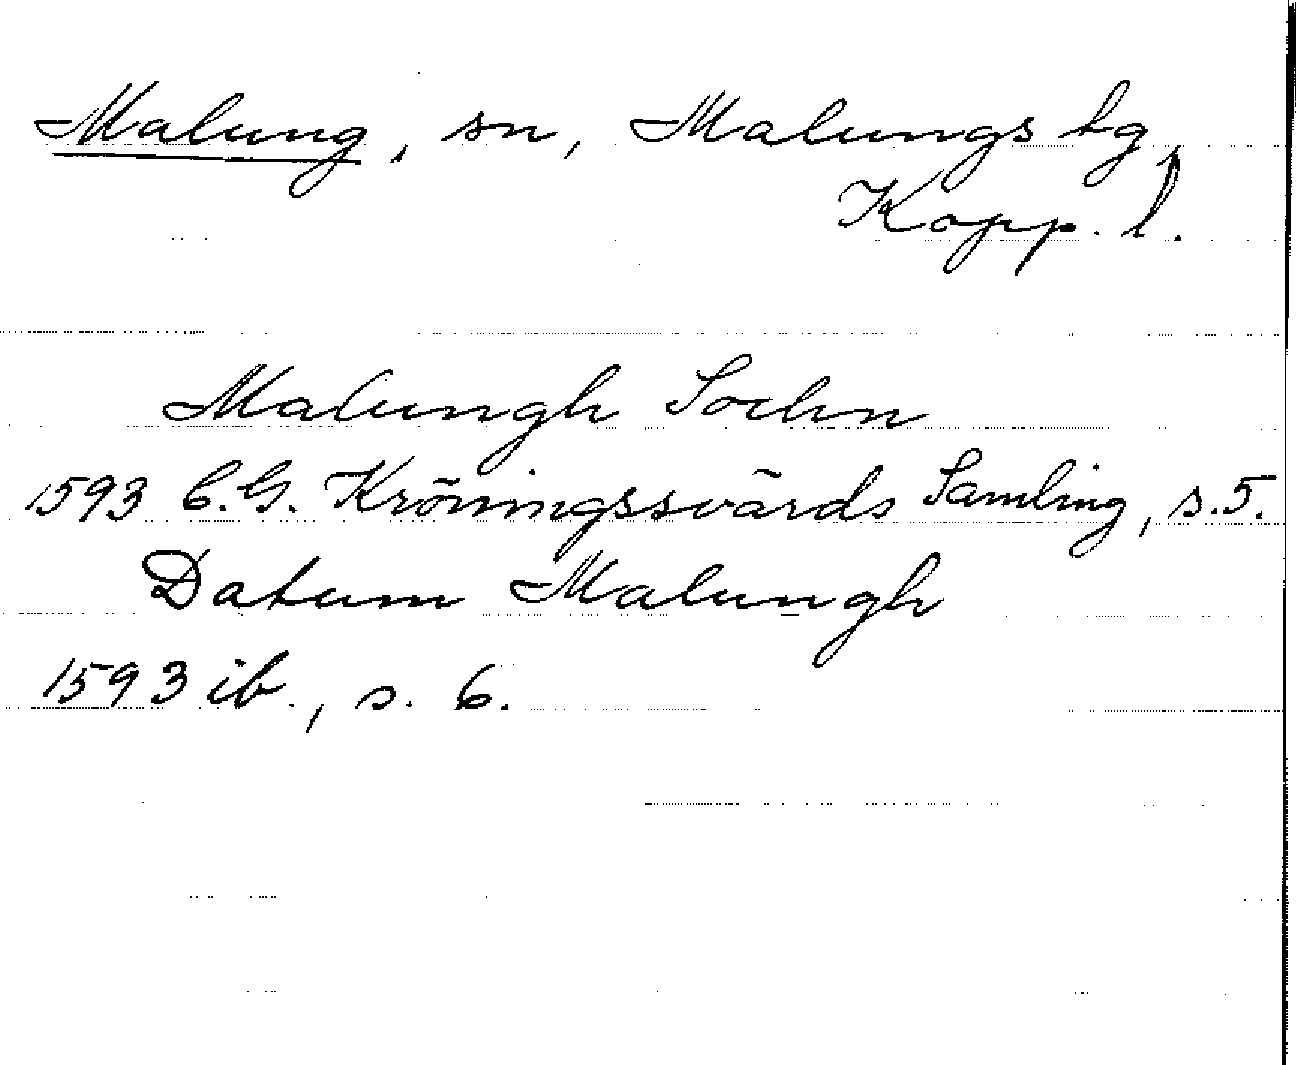 Malung, sn, Malungs tg,
Kopp. l.
Malungh Sochn
1593 C.G. Kröningssvärds Samling, s.5.
Datum Malungh
1593 ib., s. 6.